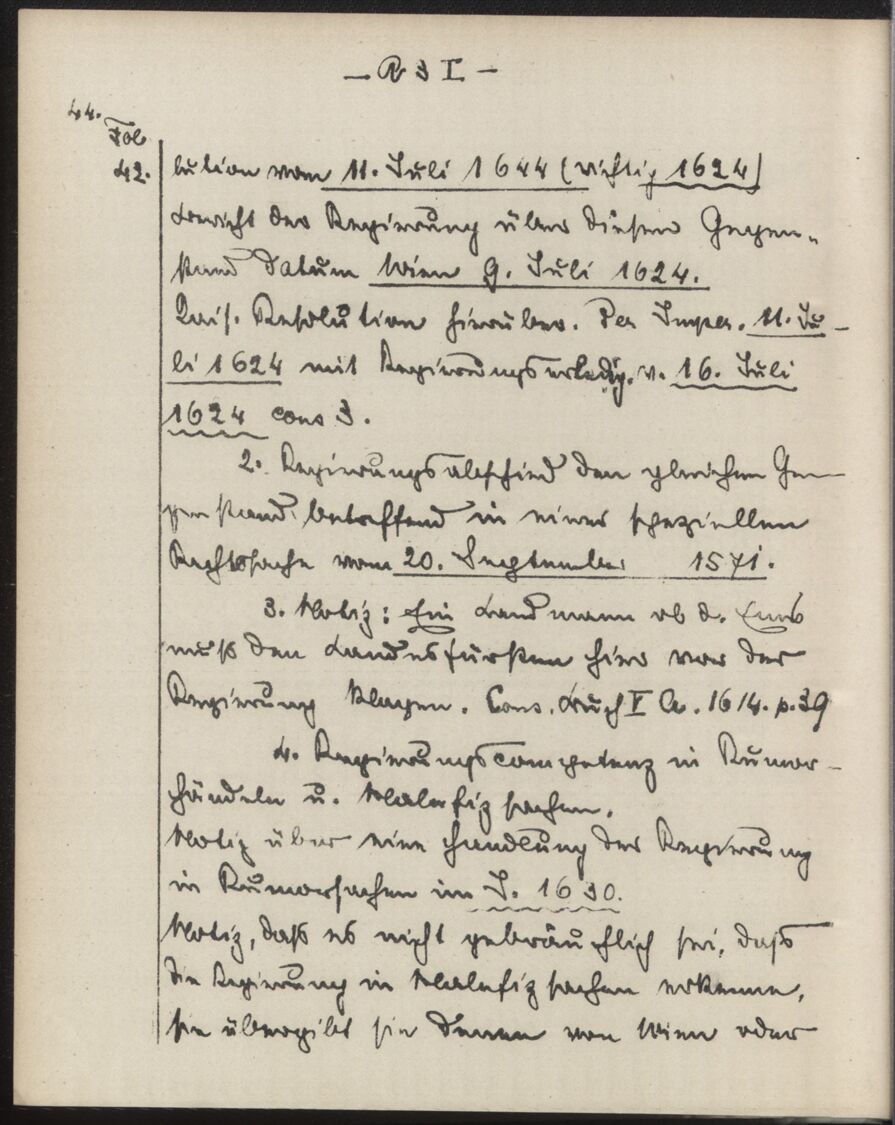 – R 3 I –
44.
Fol
42.
lution vom 11. Juli 1644 (richtig 1624)
Bericht der Regierung über diesen Gegen-
stand Datum Wien 9. Juli 1624.
Kais. Resolution hierüber. Per Imper. 11. Ju-
li 1624 mit Regierungserledig. v. 16. Juli
1624 cons 3.
2. Regierungsabschied den gleichen Ge-
genstand betreffend in einer speziellen
Rechtssache vom 20. September 1571.
3. Notiz: Ein Landmann ob d. Enns
muß den Landesfürsten hier vor der
Regierung klagen. Cons. Buch E 1614. p. 39
4. Regierungscompetenz in Rumor-
händeln u. Malefizsachen.
Notiz über eine Handlung der Regierung
in Rumorsachen im J. 1630.
Notiz, daß es nicht gebräuchlich sei, daß
die Regierung in Malefizsachen erkenne,
sie übergibt sie denen von Wien oder